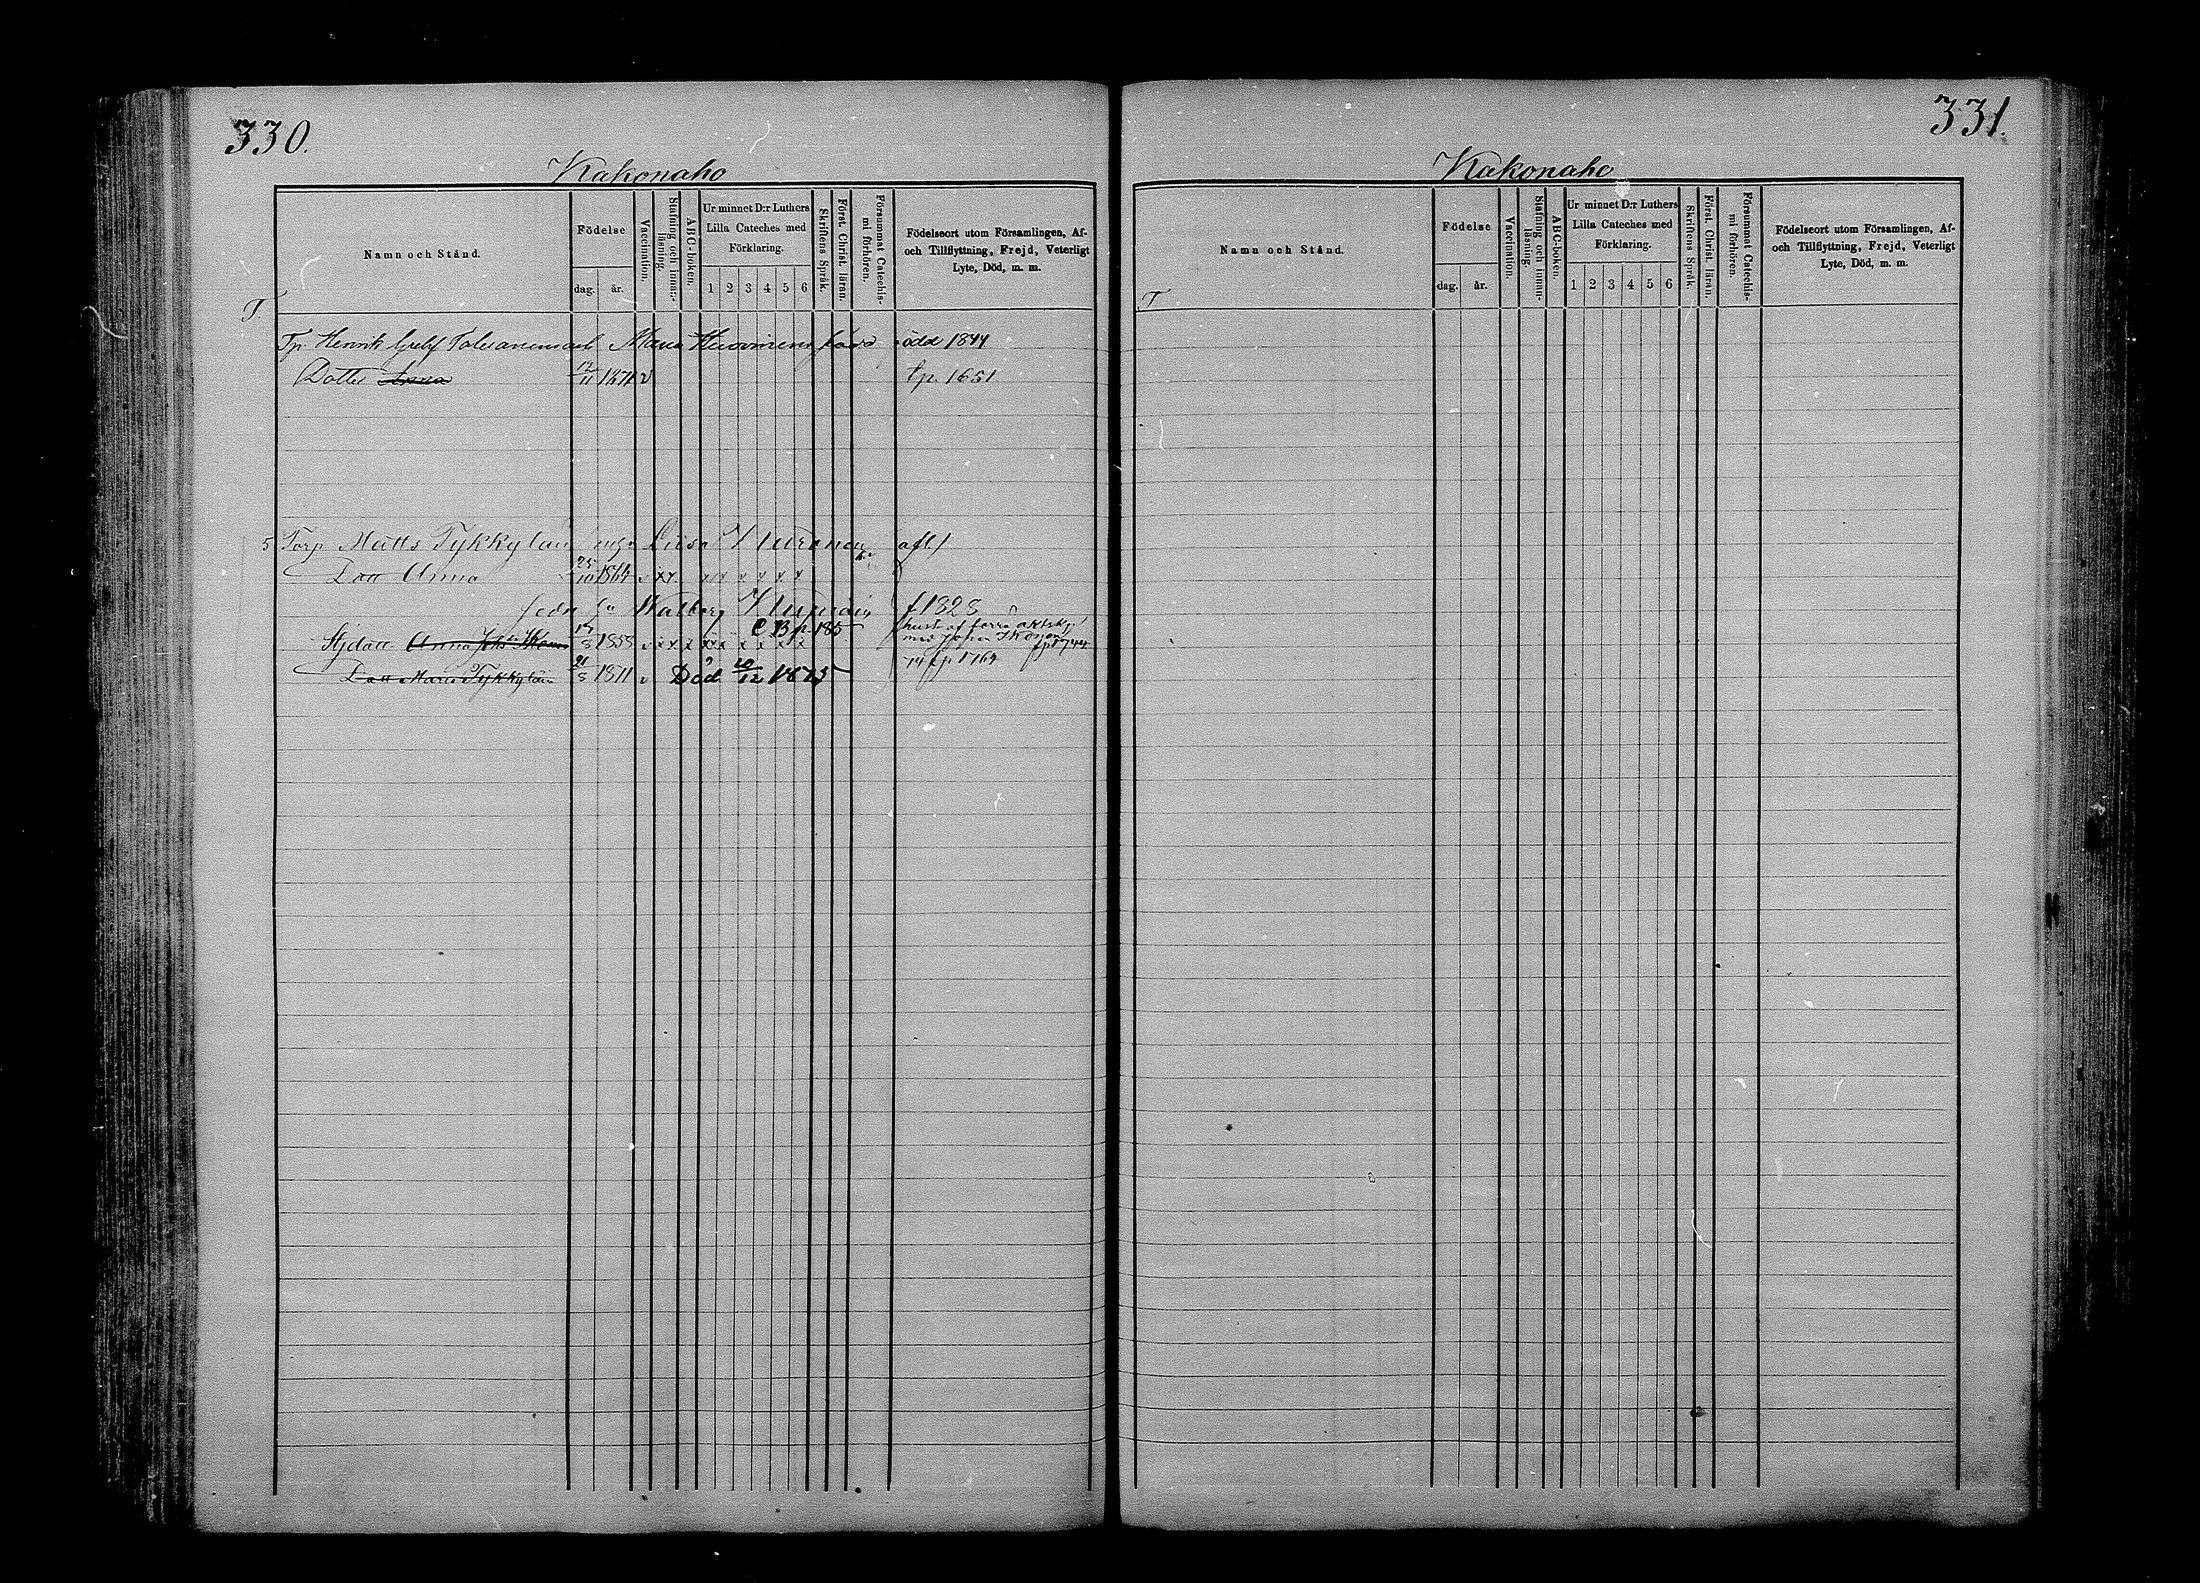 330.
Kakonaho
Namn och Stånd.
Födelse
dag.
år.
Vaccination.
Stafning och innan-läsning.
ABC-boken.
Ur minnet D:r Luthers
Lilla Cateches med
Förklaring.
1 2 3 4 5 6
Skriftens Språk.
Först. Christ. läran.
Försummat Catechis-
mi förhören.
Födelseort utom Församlingen, Af-
och Tillflyttning, Frejd, Veterligt
Lyte, Död, m. m.
T
Tp. Henrik Maria född 1844
Dotter Anna 12/11 1871 v fp. 1651
5 Torp. Matts Tykkyläin Liisa
Dott Anna 25/10 1864 v x x x x x x x x
Walborg f. 1828
C B p. 185
Stjdott Anna 1858 v x x x x x x x x
hust. af förra äktskp.
med Johan Ikonen
74 fp 1764
Dott Maria Tykkyläin 21/5 1871 v Död 20/12 1873
331.
Kakonaho
Namn och Stånd.
Födelse
dag.
år.
Vaccination.
Stafning och innan-läsning.
ABC-boken.
Ur minnet D:r Luthers
Lilla Cateches med
Förklaring.
1 2 3 4 5 6
Skriftens Språk.
Först. Christ. läran.
Försummat Catechis-
mi förhören.
Födelseort utom Församlingen, Af-
och Tillflyttning, Frejd, Veterligt
Lyte, Död, m. m.
T